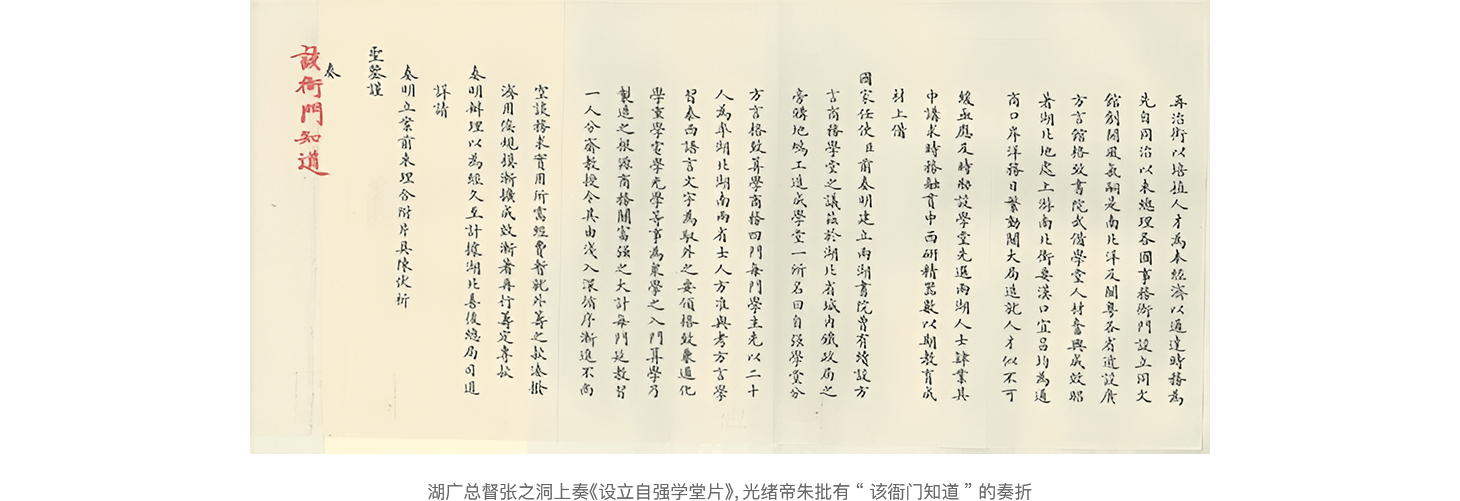 再治術以培植人才為本經濟以通達時務為
先自同治以來總理各國事務衙門設立同文
館創開風氣嗣是南北洋及閩粵各省遞設廣
方言館格致書院武備學堂人材奮興成效昭
著湖北地處上游南北衝要漢口宜昌均為通
商口岸洋務日繁動關大局造就人才似不可
緩亟應及時創設學堂先選兩湖人士肄業其
中講求時務融貫中西研精器數以期教育成
材上備
國家任使臣前奏明建立兩湖書院曾有續設方
言商務學堂之議茲於湖北省城內鐵政局之
旁購地鳩工造成學堂一所名曰自強學堂分
方言格致算學商務四門每門學生先以二十
人為率湖北湖南兩省士人方准與考方言學
習泰西語言文字為馭外之要領格致兼通化
學重學電學光學等事為眾學之入門算學乃
製造之根源商務關富強之大計每門延教習
一人分齋教授令其由淺入深循序漸進不尚
空談務求實用所需經費暫就外籌之款湊撥
濟用俟規模漸擴成效漸著再行籌定專款
奏明辦理以為經久至計據湖北善後總局司道
詳請
奏明立案前來理合附片具陳伏祈
聖鑒謹
奏
該衙門知道
湖广总督张之洞上奏《设立自强学堂片》，光绪帝朱批有“该衙门知道”的奏折